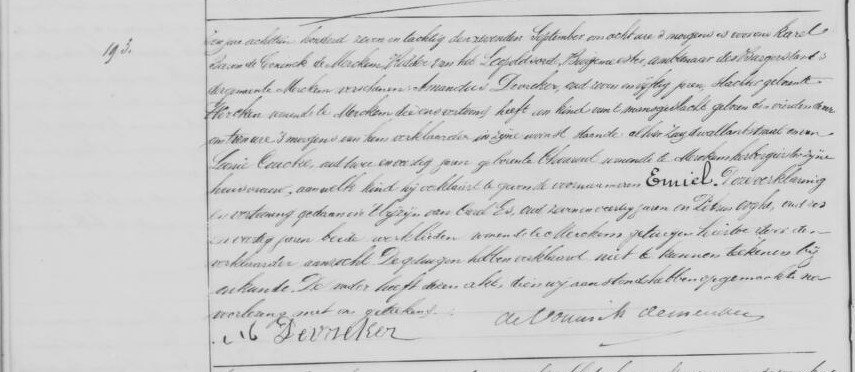 193.
jaar achttien honderd zeven en tachtig den zevenden September om acht ure 's morgens is voor ons Karel
de Coninck de Merckem, Ridder van het Leopoldsoord, Burgemeester, ambtenaar des Burgerstands
der gemeente Merckem verschenen Amandus Devreker, oud zeven en vijftig jaren, slachter geboortig
Merckem wonende te Merckem die ons vertoond heeft een kind van 't mansgeslacht geboren den vierden dezer
om ure 's morgens van hem verklaarder in zijne woonst staande alhier en van
Louise Couche, oud twee en veertig jaren geboortig wonende te Merckem herbergierster zijne
huisvrouw, aan welk kind hij verklaart te geven de voornaam van Emiel. Deze verklaring
en vertooning gedaan in 't bijzijn van Carel Es, oud zeven en veertig jaren en Pieter oud zes
en veertig jaren beide werklieden wonende te Merckem getuigen hiertoe door den
verklaarder aanzocht. De getuigen hebben verklaard niet te kunnen teekenen bij
oorkonde. De vader heeft dezen akt, dien wij aanstonds hebben opgemaakt na
voorlezing met ons geteekend.
Devreker de Coninck de Merckem